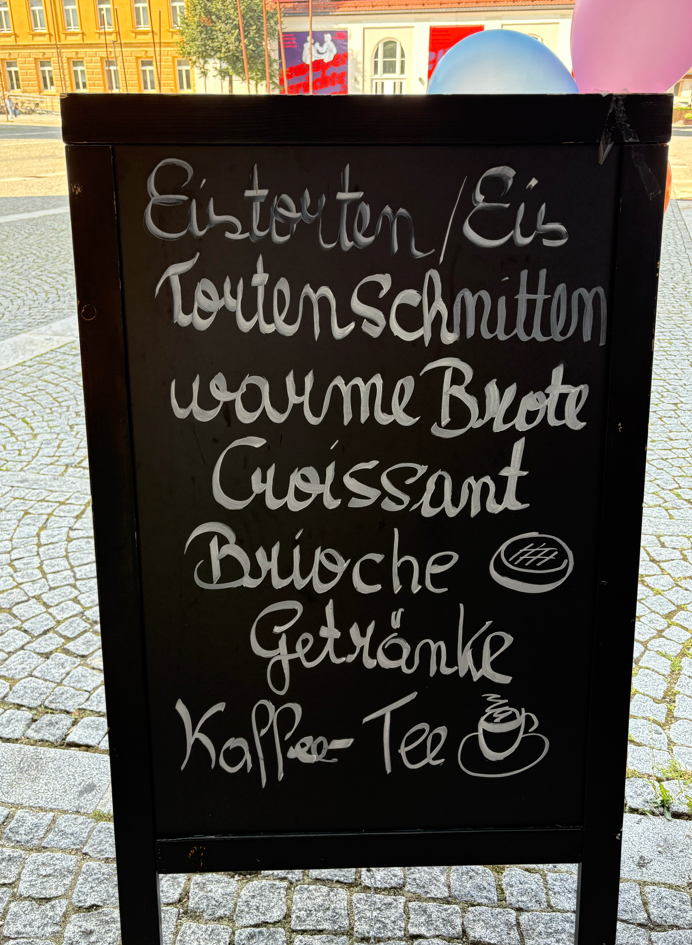 Eistorten/Eis
Tortenschnitten
warme Brote
Croissant
Brioche
Getränke
Kaffee-Tee